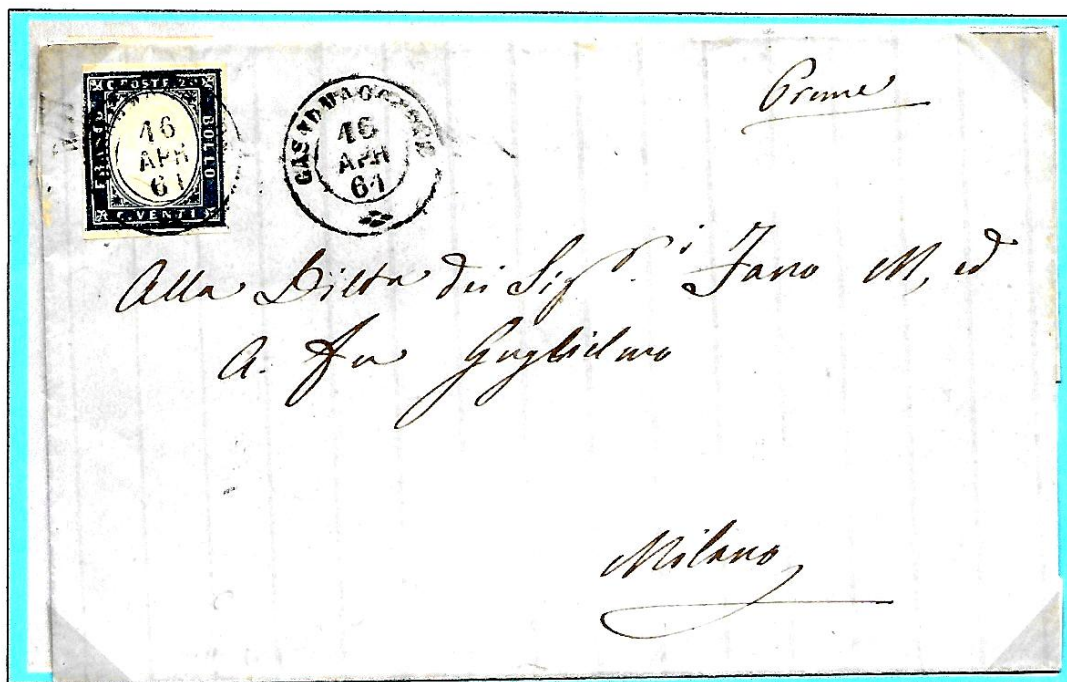 C. POSTE 20
FRANCO
BOLLO
C. VENTI
16
APR
61
CASTELMAGGIORE
16
APR
61
Preme
Alla Ditta dei Sig.ri Jano M, ed
A. fu Guglielmo
Milano